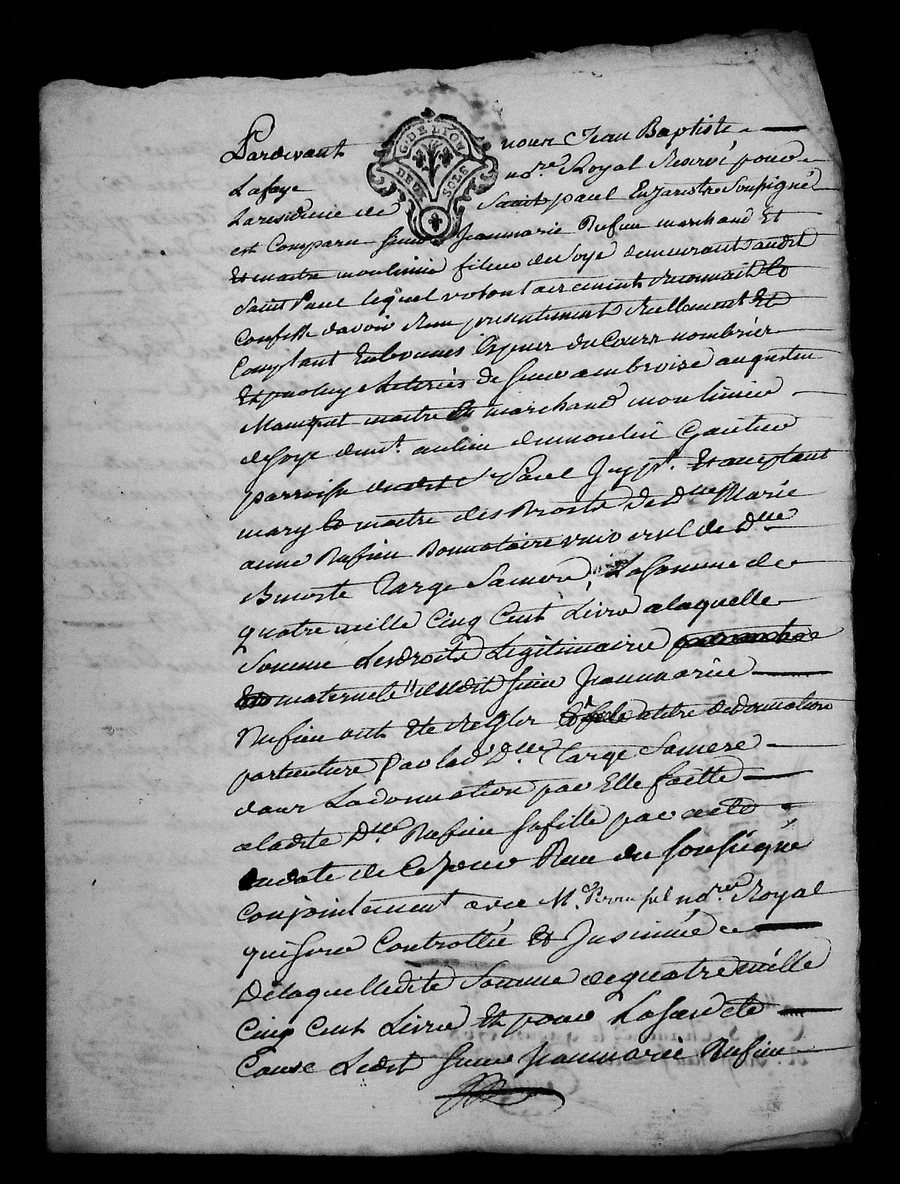 Pardevant nous Jean Baptiste
G. DE LYON
DEUX SOLS
Lafaye no.re Royal Reservé pour
La residence de Saint paul En Jarestre Soussigné
est Comparu Sieur Jeanmarie Rufieu marchand Et
Et maitre moulinié fileur de Soye demeurant audit
Saint Paul lequel volontairement reconnait Et
Confesse davoir Recu presentement Reellement Et
Comptant En bonnes Especes du Cours nombrées
Et de Sieur ambroise augustin
maitre Et marchand moulinier
de Soye du moulin Gautier
parroisse dudit St Paul Et acceptant
mary Et maitre des Droits de Dlle Marie
anne Rufieu Donnataire universel de Dlle
Benoite Targe Sa mere, La Somme de
quatre mille Cinq Cent Livre a laquelle
Somme Les droits Legitimaire
maternels dudit Sieur Jeanmarie
Rufieu ont Eté Reglés a titre de donnation
particuliere Par lad. Dlle Targe Sa mere
dans La donnation par Elle faitte
a ladite Dlle Rufieu Sa fille par acte
En date de Ce jour Recu du Soussigné
Conjointement avec M.e no.re Royal
qui Sera Controllée Et Insinuée
De laquelle dite Somme de quatre mille
Cinq Cent Livre Et pour La Sureté
Cause Ledit Sieur Jeanmarie Rufieu